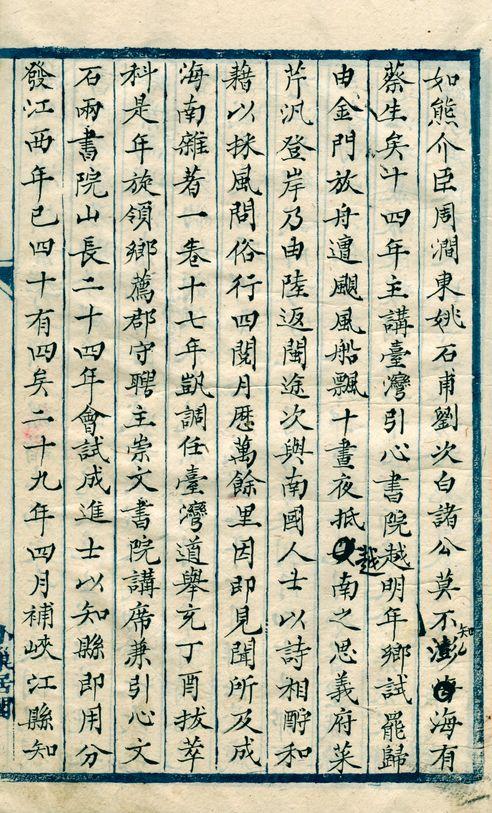 如熊介臣周澗東姚石甫劉次白諸公莫不知澎海有
蔡生矣十四年主講臺灣引心書院越明年鄉試罷歸
由金門放舟遭颶風船飄十晝夜抵越南之思義府菜
芹汎登岸乃由陸返閩途次與南國人士以詩相酧和
藉以採風問俗行四閱月歷萬餘里因即見聞所及成
海南雜著一卷十七年凱調任臺灣道舉充丁酉拔萃
科是年旋領鄉薦郡守聘主崇文書院講席兼引心文
石兩書院山長二十四年會試成進士以知縣即用分
發江西年已四十有四矣二十九年四月補峽江縣知